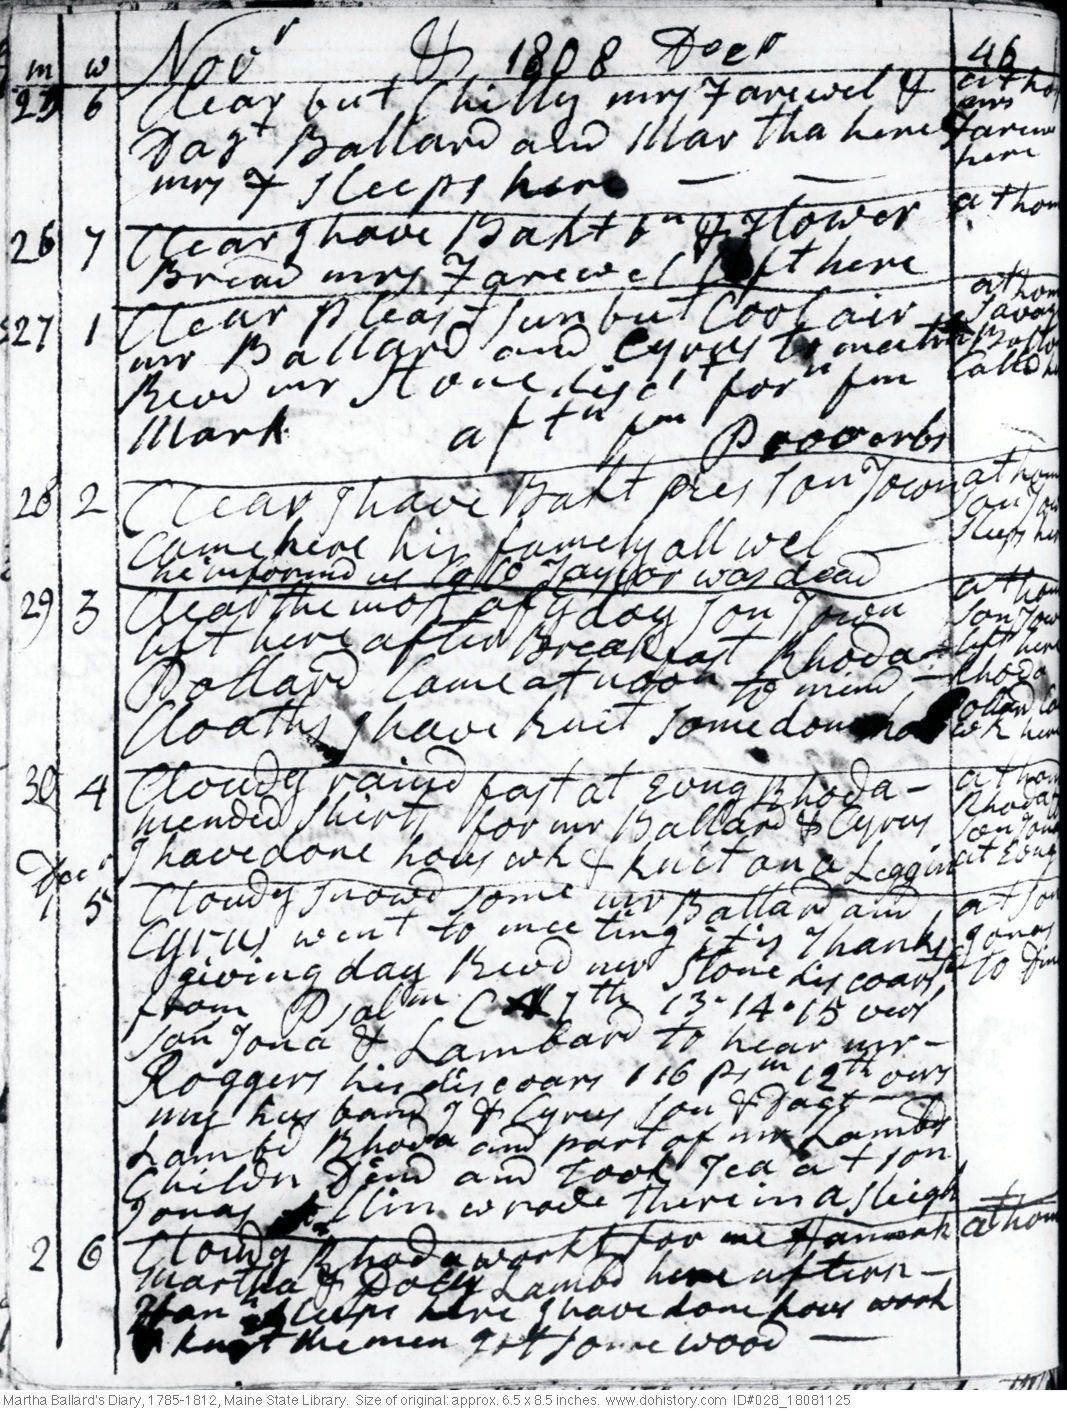 Novr & 1808 Decr 46
m w
25 6 Clear but Chilly mrs Farewel & at ho
Dagt Ballard and Martha here mrs Farew
mrs F sleeps here — — here
26 7 Clear I have Bakt bn & Flower at hom
Bread mrs Farewel left here
27 1 Clear Pleast sun but Cool air at hom
mr Ballard and Cyrus to meetin Savag
Revd mr Stone disct forn fm Ballo
Mark aftn fm Proverbs Calld he
28 2 Clear I have Bakt pies son Town at hom
Came here his famely all wel — son Tow
he informd us Colo Taylor was dead sleeps her
29 3 Clear the most of ye day son Town at hom
left here after Breakfast Rhoda son Tow
Pollard Came at noon to mend — left here
Cloaths I have knit some done hous wk Rhoda
Pollard Co
wk here
30 4 Cloudy raind fast at Evng Rhoda — at hom
mended shirts for mr Ballard & Cyrus Rhoda
I have done hous wk & knit on a Leggin son Jona
at Evng
Decr
1 5 Cloudy snowd some mr Ballard and at son
Cyrus went to meeting it is Thanks Jonas
giving day Revd mr Stone discoarst to Din
from Psalm C 7th 13-14-15 vers
son Jona & Lambard to hear mr —
Roggers his discoars 116 Psm 12th vers
my husband I & Cyrus son & Dagt —
Lambd Rhoda and part of mr Lambds
Childn Dind and took Tea at son
Jonas wrode there in a sleigh
2 6 Cloudy Rhoda workt for me Hannah at hom
Martha & Dolly Lambd here aftern —
Han h sleeps here I have done hous work
& knit the men got some wood —
Martha Ballard's Diary, 1785-1812, Maine State Library. Size of original: approx. 6.5 x 8.5 inches. www.dohistory.com ID#028_18081125